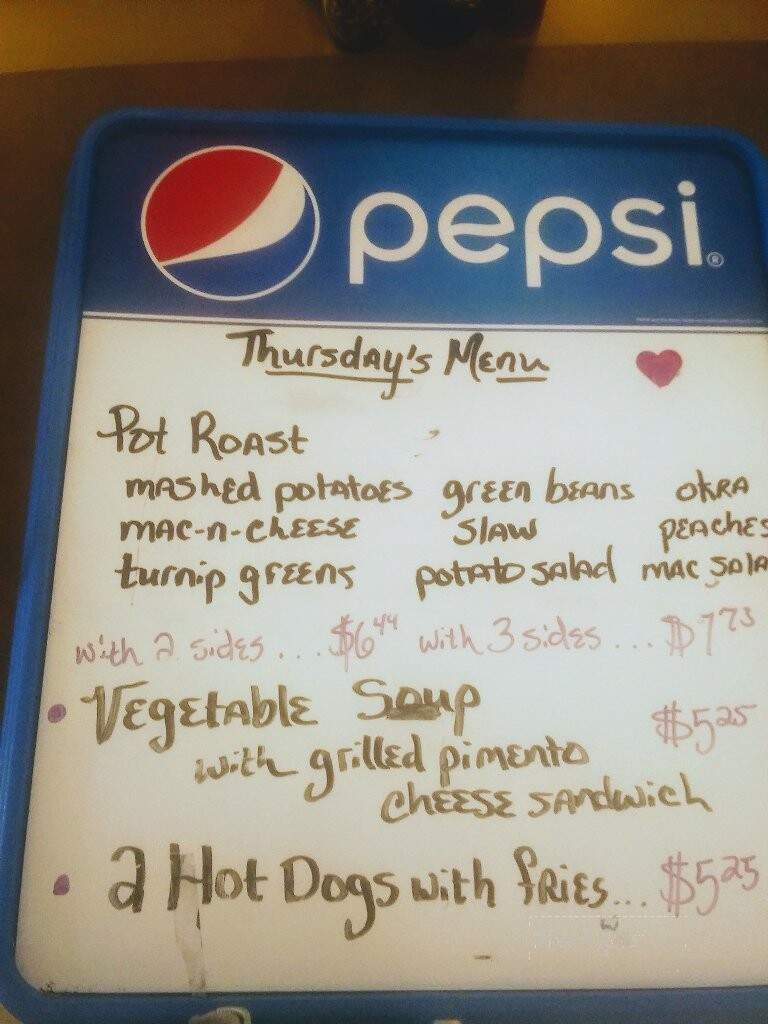 pepsi®
Thursday's Menu
Pot Roast
mashed potatoes green beans okra
mac-n-cheese slaw peaches
turnip greens potato salad mac sala
with 2 sides... $6.44 with 3 sides... $7.73
• Vegetable Soup $5.25
with grilled pimento
cheese sandwich
• 2 Hot Dogs with fries... $5.25